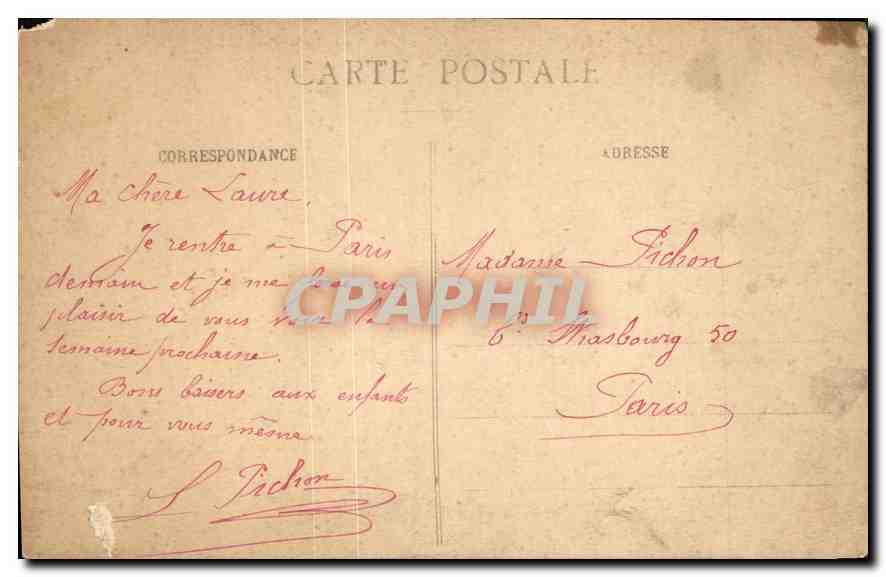 CARTE POSTALE
CORRESPONDANCE
Ma chère Laure,
Je rentre à Paris
demain et je me ferai un
plaisir de vous voir la
semaine prochaine.
Bons baisers aux enfants
et pour vous même
S Pichon
ADRESSE
Madame Pichon
Bd Strasbourg 50
Paris
CPAPHIL